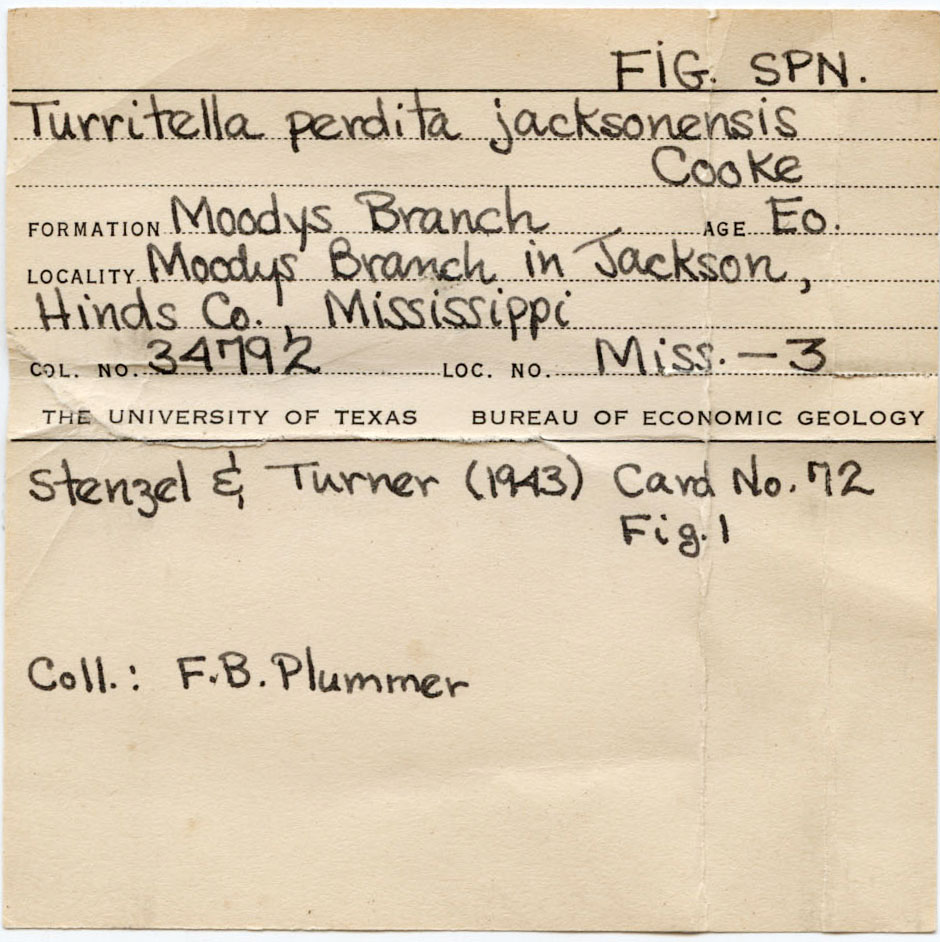 FIG. SPN.
Turritella perdita jacksonensis
Cooke
FORMATION Moodys Branch AGE Eo.
LOCALITY Moodys Branch in Jackson,
Hinds Co., Mississippi
COL. NO. 34792 LOC. NO. Miss.-3
THE UNIVERSITY OF TEXAS BUREAU OF ECONOMIC GEOLOGY
Stenzel & Turner (1943) Card No. 72
Fig. 1
Coll.: F.B. Plummer